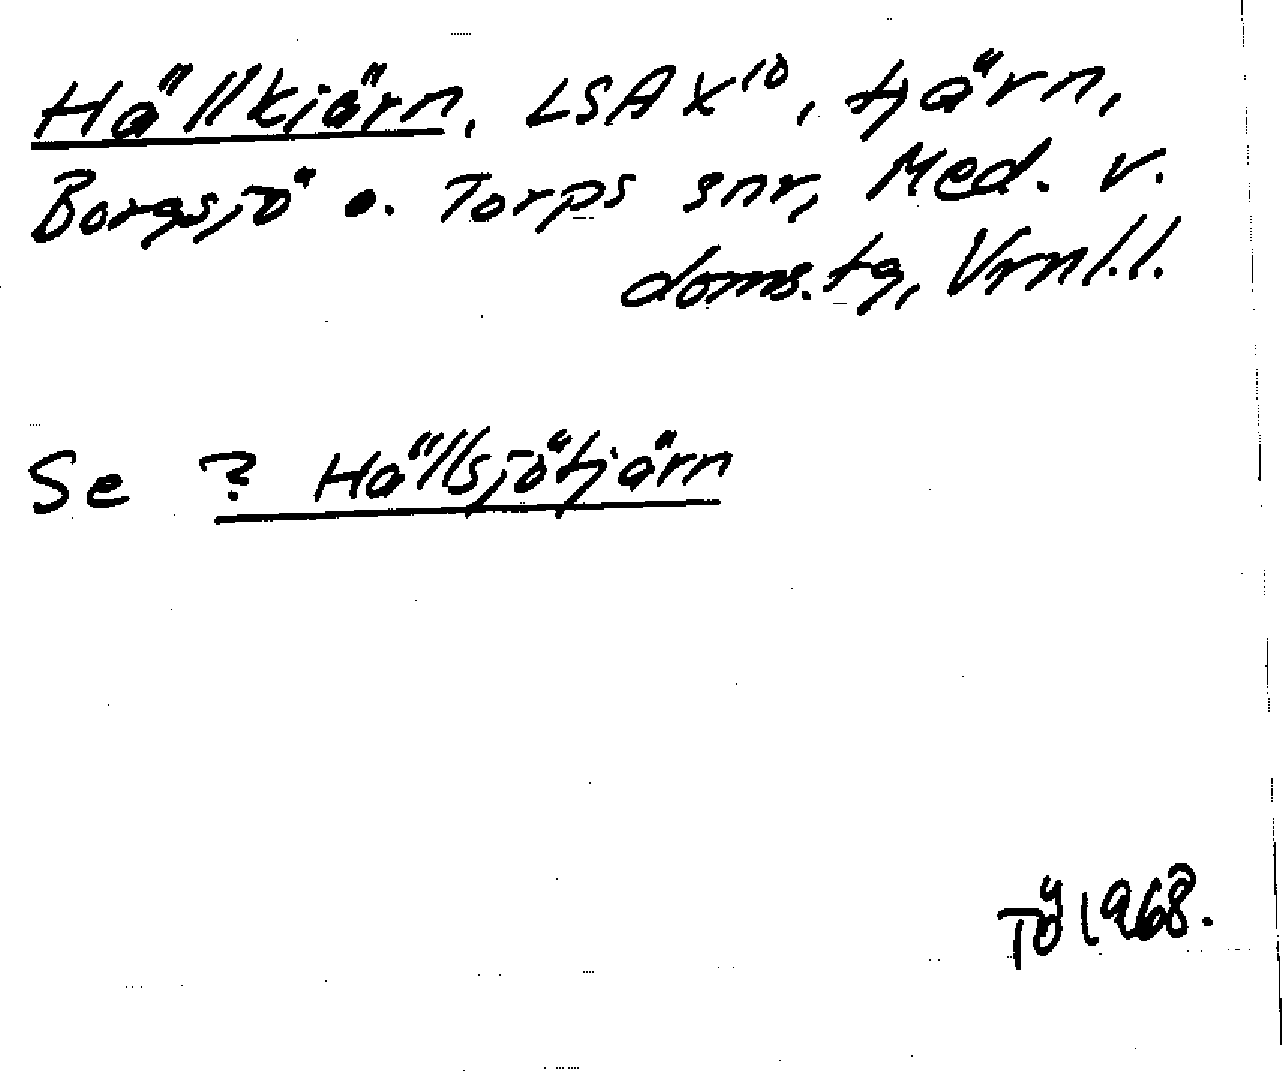 Hällkiärn, LSA X10, tjärn,
Borgsjö o. Torps snr, Med. v.
doms.tg, Vrnl.l.
Se ? Hällsjötjärn
TÖ 1968.